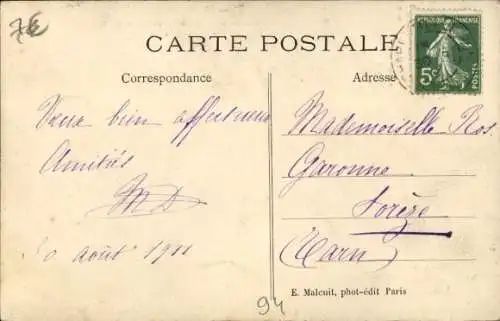 7€
CARTE POSTALE
REPUBLIQUE FRANÇAISE
5c
POSTES
Correspondance
Adresse
bien affectueuses
Amitiés
MD
Mademoiselle Ros.
Garonne
Sorèze
(Tarn)
0 août 1911
E. Malcuit, phot-édit Paris
94